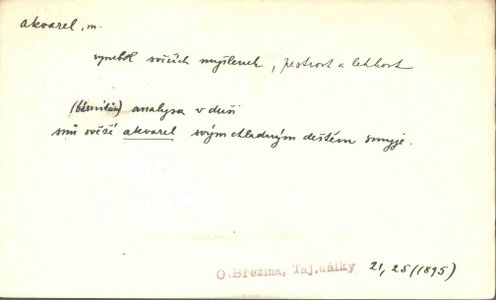 akvarel, m.
symbol svěžích myšlenek, pestrost a lehkost
(básníkům) analysa v duši
snů svěží akvarel svým chladným deštěm smyje.
O.Březina, Taj.dálky 21, 25 (1895)